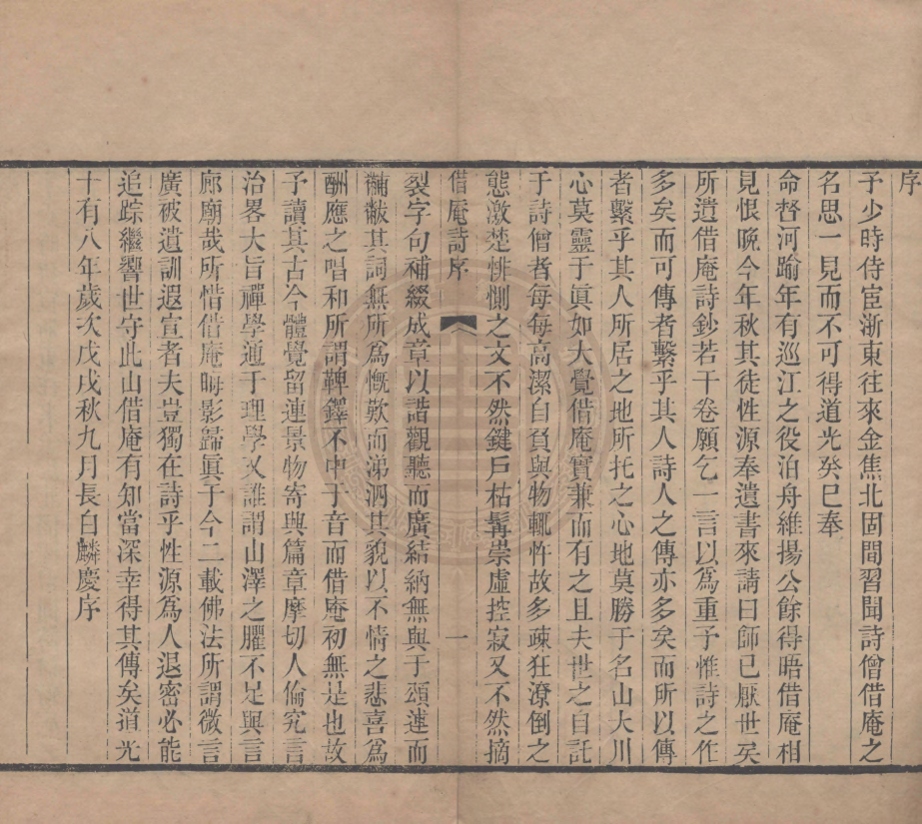 序
予少時侍宦浙東往來金焦北固間習聞詩僧借庵之
名思一見而不可得道光癸巳奉
命督河踰年有巡江之役泊舟維揚公餘得晤借庵相
見恨晚今年秋其徒性源奉遺書來請曰師已厭世矣
所遺借庵詩鈔若干卷願乞一言以爲重予惟詩之作
多矣而可傳者繫乎其人詩人之傳亦多矣而所以傳
者繫乎其人所居之地所托之心地莫勝于名山大川
心莫靈于眞如大覺借庵實兼而有之且夫世之自託
于詩僧者每每高潔自負與物輒忤故多疎狂潦倒之
態激楚悱惻之文不然鍵戶枯髯崇虛控寂又不然摘
借庵詩序
一
裂字句補綴成章以諧觀聽而廣結納無與于頌連而
黼黻其詞無所爲慨歎而涕泗其貌以不情之悲喜爲
酬應之唱和所謂鞞鐸不中于音而借庵初無是也故
予讀其古今體覺留連景物寄興篇章摩切人倫究言
治畧大旨禪學通于理學又誰謂山澤之臞不足與言
廊廟哉所惜借庵晦影歸眞于今二載佛法所謂微言
廣被遺訓遐宣者夫豈獨在詩乎性源爲人退密必能
追踪繼響世守此山借庵有知當深幸得其傳矣道光
十有八年歲次戊戌秋九月長白麟慶序